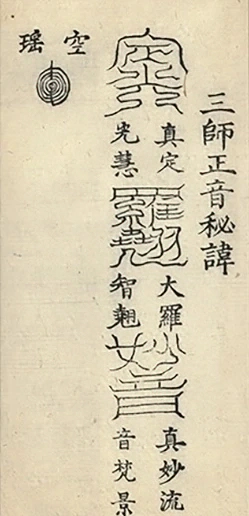 三師正音秘諱
真定
光慧
大羅
智翹
妙音
真妙流
音梵景
空瑤